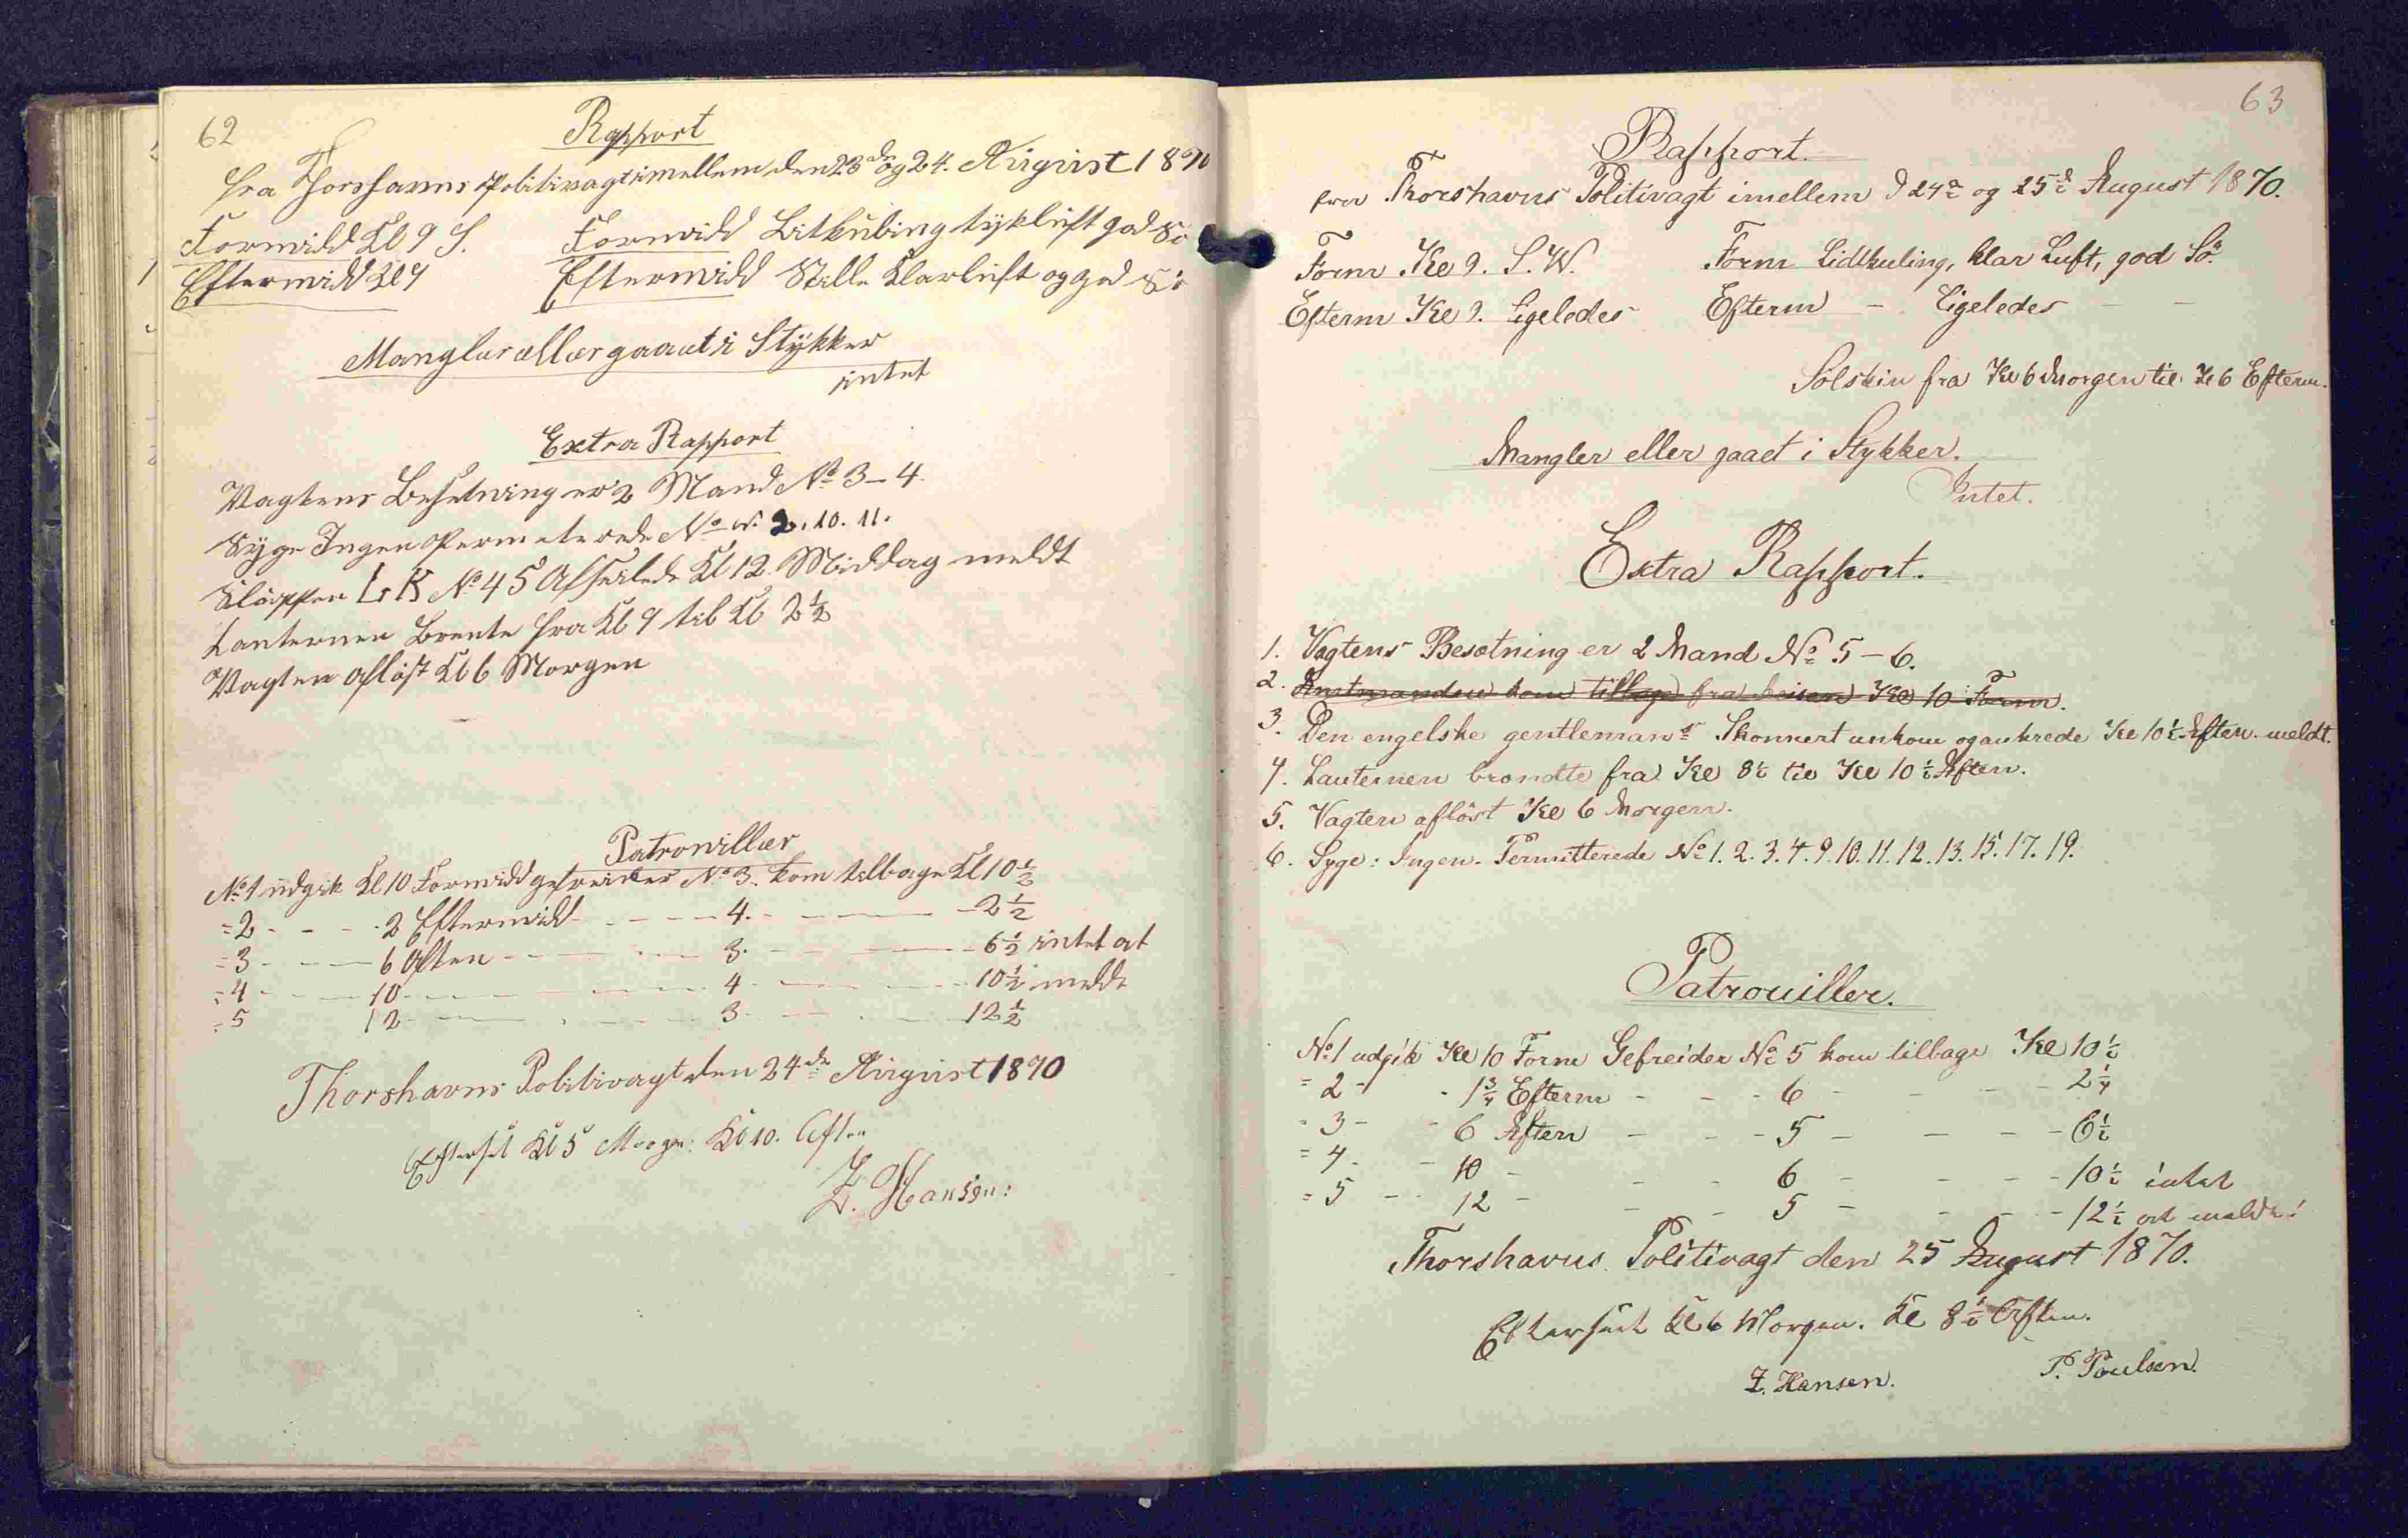 62
Rapport
fra Thorshavns Politivagt imellem den 23de og 24. August 1870
Formidd Kl 9 S. Formidd Litkuling tykluft god Sö
Eftermidd Kl 9 Eftermidd Stille Klarluft og god Sö
Mangler eller gaaet i Stykker
intet
Extra Rapport
Vagtens Besetning er 2 Mand No 3-4.
Syge Ingen Permeterede No 2. 10. 11.
Slöppen No 45 Afseilede Kl 12 Middag meldt
Lanternen Brente fra Kl 9 til Kl 2 1/2
Vagten aflöst Kl 6 Morgen
Patrouiller
No 1 udgik Kl 10 Formidd gefreider No 3. kom tilbage Kl 10 1/2
=2 - - - 2 Eftermidd - - - 4. - - - 2 1/2
=3 - - - 6 Aften - - - 3. - - - 6 1/2 intet at
=4 - - - 10 - - - 4 - - - 10 1/2 melde
=5 12 - - - 3 - - - 12 1/2
Thorshavns Politivagt den 24de August 1870
Efterset Kl 5 Morgen: Kl 10. Aften
Z. Hansen:
63
Rapport.
fra Thorshavns Politivagt imellem d 24d og 25d August 1870.
Form Kl 9. S.W. Form Lidtkuling, klar Luft, god Sö.
Efterm Kl 9. Ligeledes Efterm - Ligeledes - -
Solskin fra Kl 6 Morgen til Kl 6 Efterm.
Mangler eller gaaet i Stykker.
Intet.
Extra Rapport.
1. Vagtens Besætning er 2 Mand No 5-6.
2. Amtmanden kom tilbage fra Reisen Kl 10 Form.
3. Den engelske gentlemans Skonnert ankom og ankrede Kl 10 1/2 Aften. meldt.
4. Lanternen brændte fra Kl 8 1/2 til Kl 10 1/2 Aften.
5. Vagten aflöst Kl 6 Morgen.
6. Syge: Ingen. Permitterede No 1. 2. 3. 4. 9. 10. 11. 12. 13. 15. 17. 19.
Patrouiller.
No 1 udgik Kl 10 Form Gefreider No 5 kom tilbage Kl 10 1/2
= 2 - - 1 3/4 Efterm - - - 6 - - - 2 1/4
= 3 - - 6 Aften - - - 5 - - - 6 1/2
= 4 - - 10 - - - 6 - - - 10 1/2 intet
= 5 - - 12 - - - 5 - - - 12 1/2 at melde!
Thorshavns Politivagt den 25 August 1870.
Efterseet Kl 6 Morgen. Kl 8 1/2 Aften.
Z. Hansen. P. Poulsen.